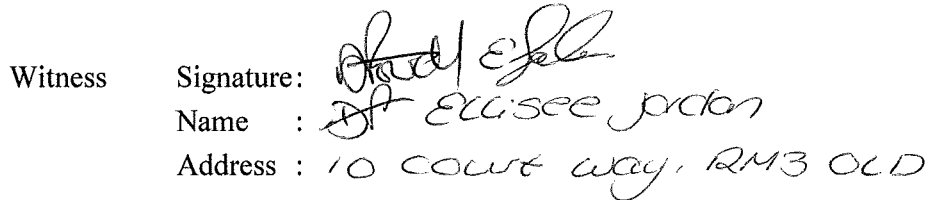 Witness Signature:
Name : Ellisee Jordan
Address : 10 Court way, RM3 OLD